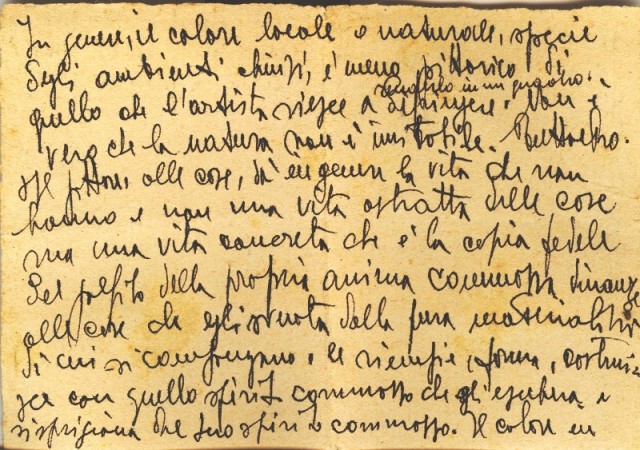 In genere, il colore locale o naturale, specie
degli ambienti chiusi, è meno pittorico di
quello che l'artista riesce a dipingere. Non è
renderlo in un quadro.
vero che la natura non è imitabile. Tutt'altro.
Il pittore, alle cose, dà in genere la vita che non
hanno e non una vita astratta delle cose
ma una vita concreta che è la copia fedele
del palpito della propria anima commossa dinanzi
alle cose che egli svuota dalla pura materialità
di cui si compongono e le riempie, forma, costrui-
sce con quello spirito commosso che gli
sprigiona dal suo spirito commosso. Il colore in